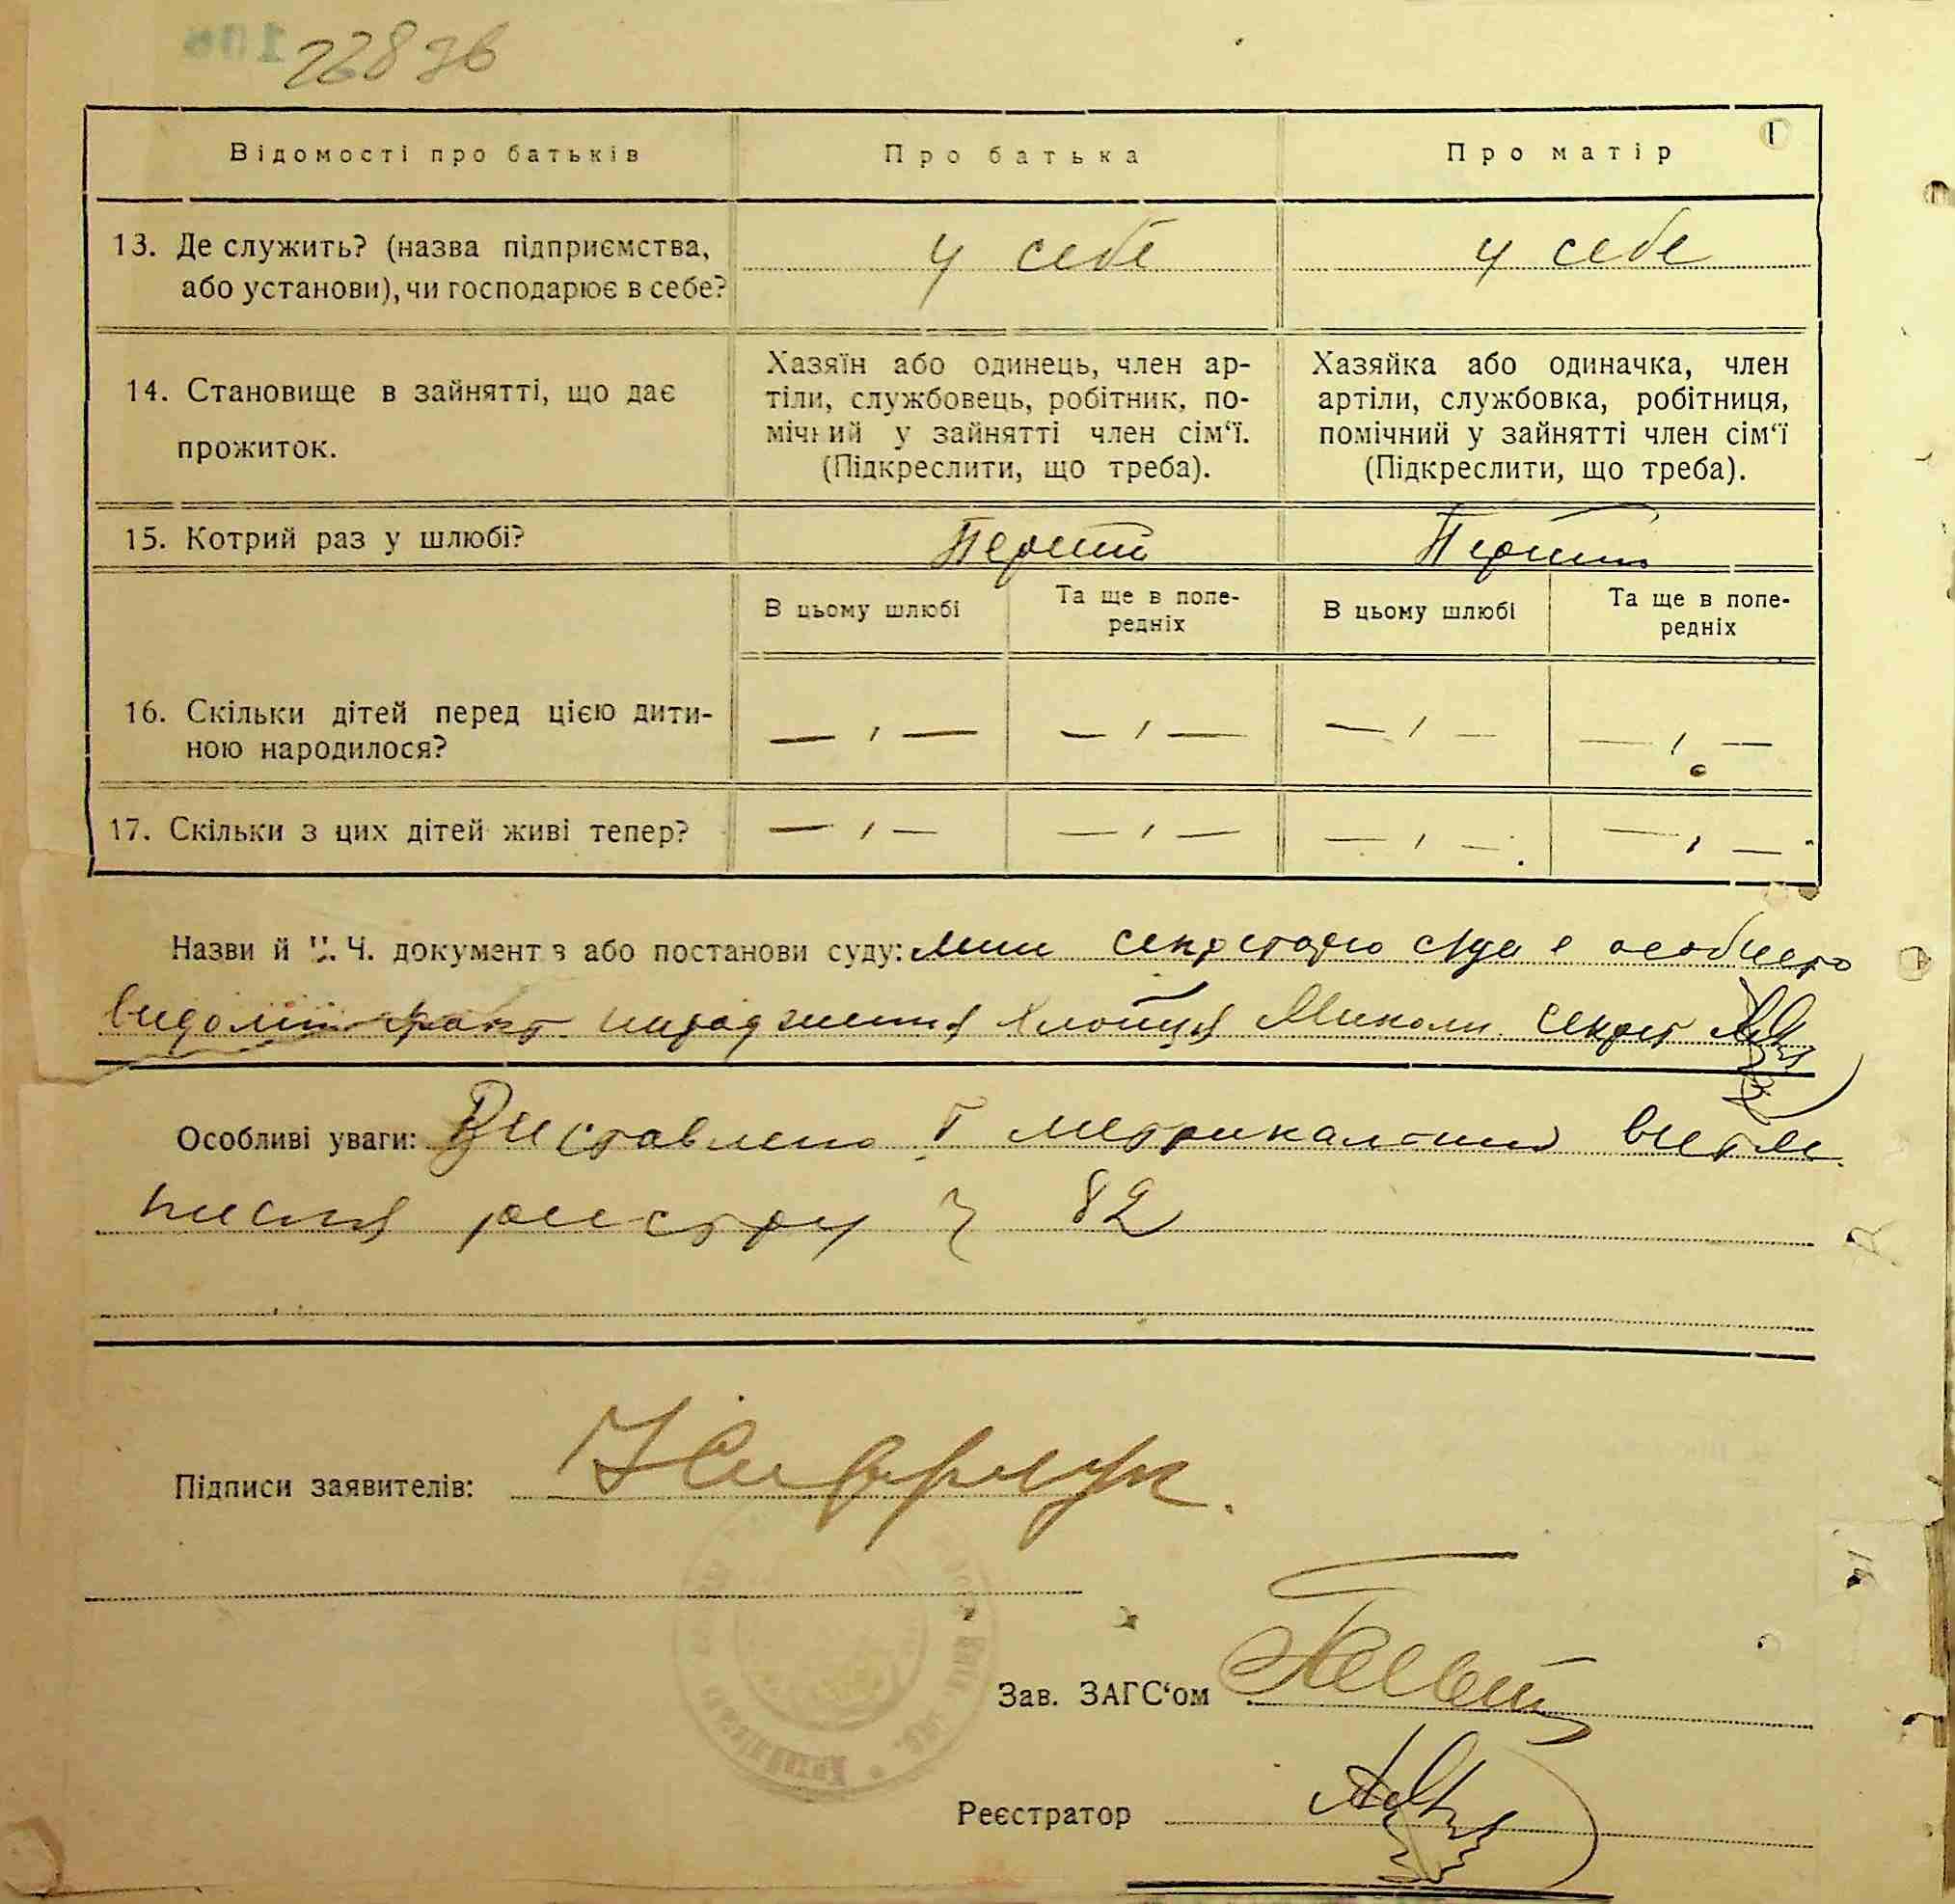 228 зв
Відомості про батьків
Про батька
Про матір
13. Де служить? (назва підприємства,
або установи), чи господарює в себе?
у себе
у себе
14. Становище в зайнятті, що дає
прожиток.
Хазяїн або одинець, член ар-
тіли, службовець, робітник, по-
мічний у зайнятті член сім‘ї.
(Підкреслити, що треба).
Хазяйка або одиначка, член
артіли, службовка, робітниця,
помічний у зайнятті член сім‘ї
(Підкреслити, що треба).
15. Котрий раз у шлюбі?
Перший
Перший
В цьому шлюбі
Та ще в попе-
редніх
В цьому шлюбі
Та ще в попе-
редніх
16. Скільки дітей перед цією дити-
ною народилося?
— ‚ —
— ‚ —
— ‚ —
— ‚ —
17. Скільки з цих дітей живі тепер?
— ‚ —
— ‚ —
— ‚ —
— ‚ —
Назви й Ч.Ч. документ в або постанови суду: мені секретарю с/ради є особисто
видомий факт народження хлопця Миколи секрет
Особливі уваги: Виставлено
реєстру ч 82
Підписи заявителів:
Зав. ЗАГС‘ом
Реєстратор